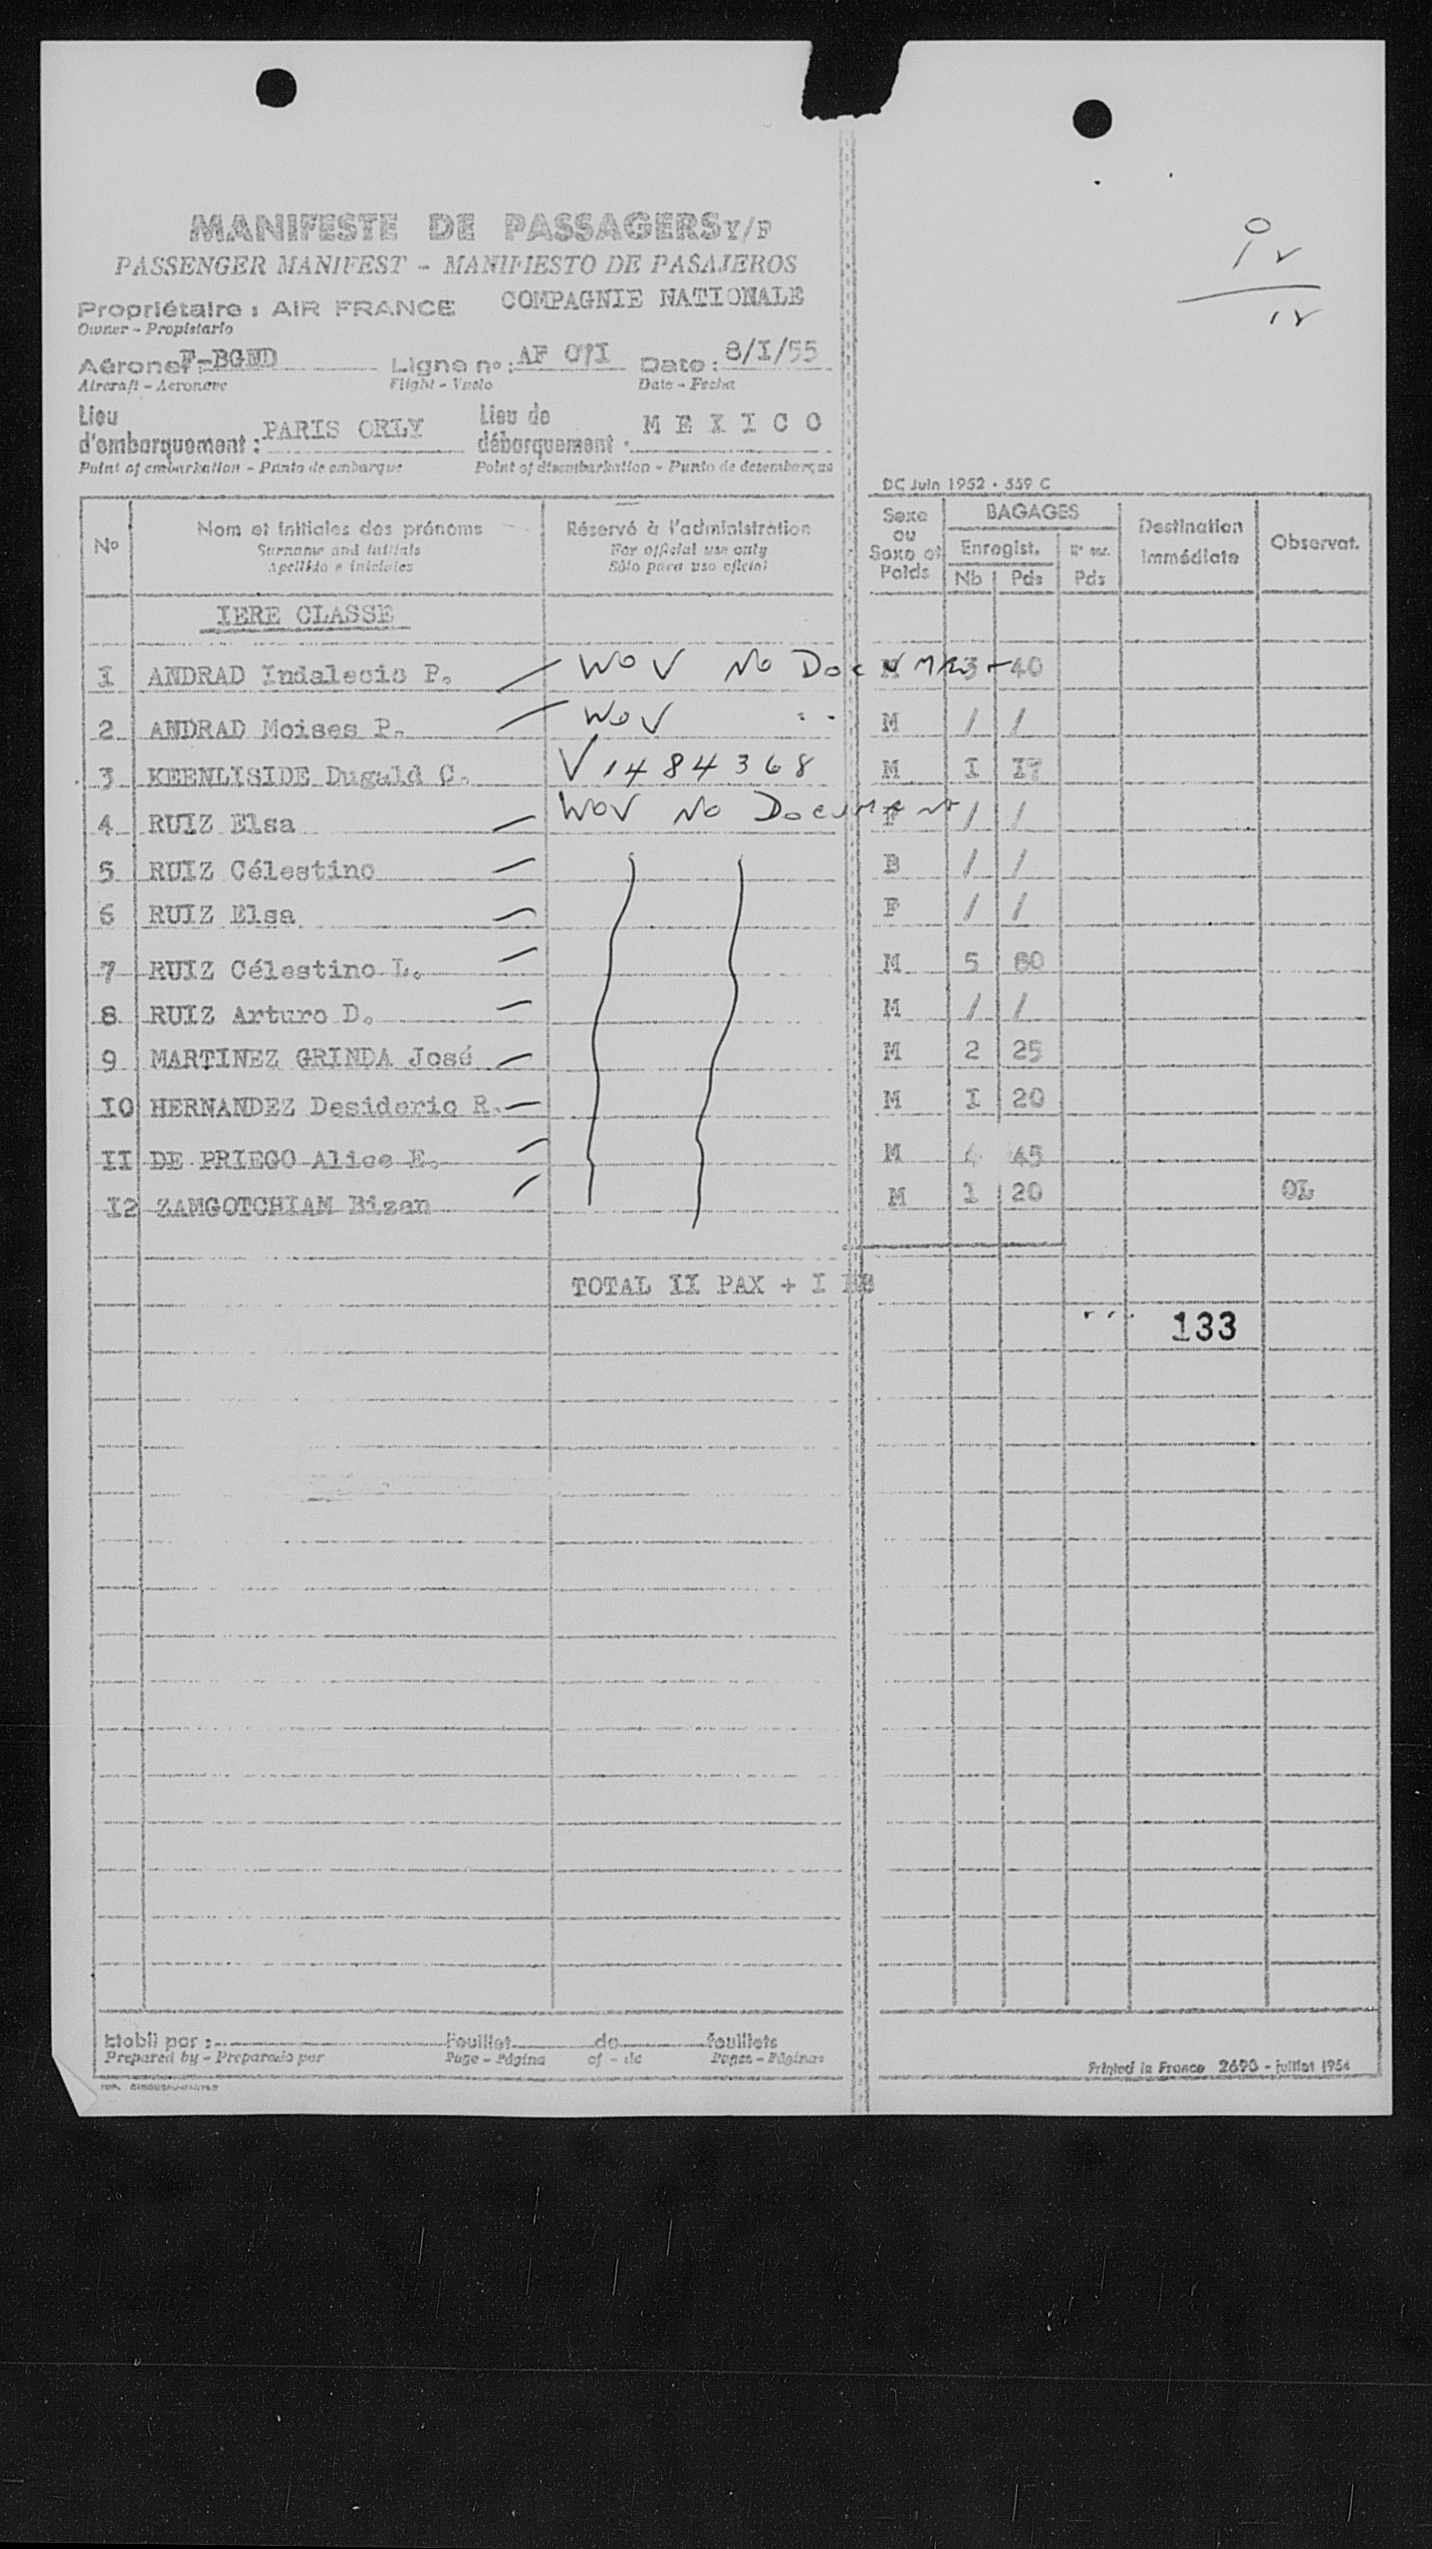 MANIFESTE DE PASSAGERS Y/F
PASSENGER MANIFEST - MANIFIESTO DE PASAJEROS
Propriétaire : AIR FRANCE COMPAGNIE NATIONALE
Owner - Propietario
Aéronef : F-BGND Ligne no : AF 071 Date : 8/I/55
Aircraft - Aeronave Flight - Vuelo Date - Fecha
Lieu d'embarquement : PARIS ORLY Lieu de débarquement : M E X I C O
Point of embarkation - Punto de embarque Point of disembarkation - Punto de desembarque
DC Juin 1952 - 559 C
No Nom et initiales des prénoms Réservé à l'administration Sexe ou Sexe et Poids BAGAGES Destination immédiate Observat.
Surname and initials For official use only Enregist.
Apellido e iniciales Sólo para uso oficial Nb Pds Pds
IERE CLASSE
I ANDRAD Indalecio P. WOV No Document M 3 40
2 ANDRAD Moises P. WOV " M / /
3 KEENLYSIDE Dugald C. V1484368 M I I7
4 RUIZ Elsa WOV No Document F / /
5 RUIZ Célestino B / /
6 RUIZ Elsa F / /
7 RUIZ Célestino L. M 5 80
8 RUIZ Arturo D. M / /
9 MARTINEZ GRINDA José M 2 25
IO HERNANDEZ Desiderio R. M I 20
II DE PRIEGO Alice E. M 4 45
I2 ZAMGOTCHIAM Bizan M 1 20 OL
TOTAL II PAX + I BB
133
Etabli par : Feuillet de feuillets
Prepared by - Preparado por Page - Página of - de Pages - Páginas
Printed in France 2690 - juillet 1954